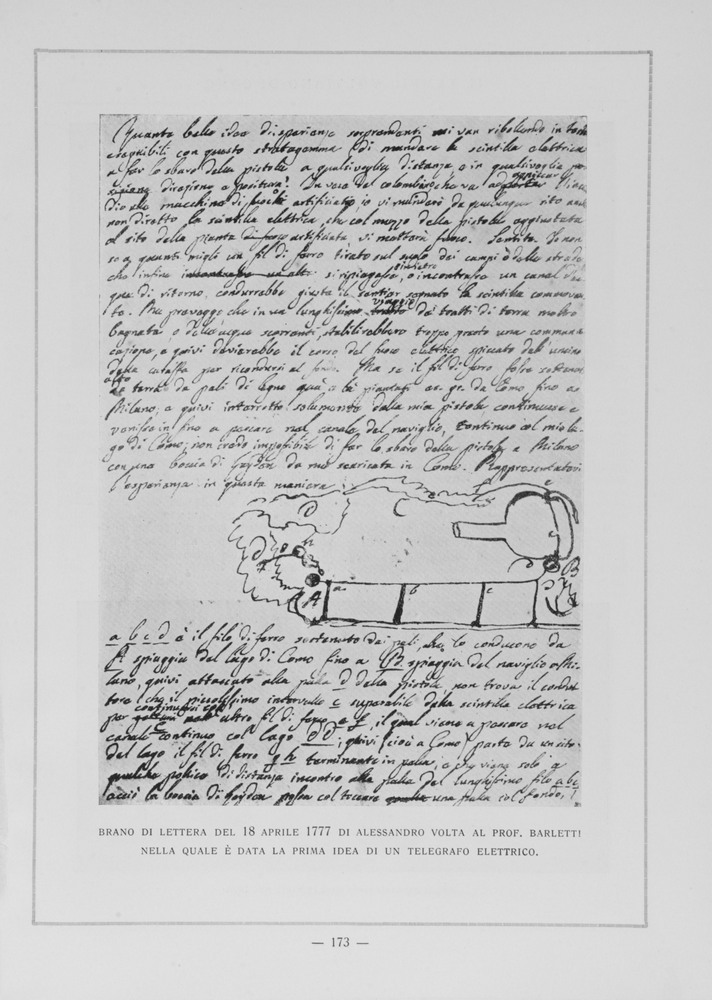 Quante belle idee di sperienze sorprendenti mi van ribollendo in testa
eseguibili con questo stratagemma di mandare la scintilla elettrica
a far lo sbaro della pistola a qualsivoglia distanza, e in qualsivoglia
direzione e positura! In vece del colombino che va ad
dio alla macchina di fuochi artificiati, io vi mandero da qualunque sito anche
non diretto la scintilla elettrica, che col mezzo della pistola aggiustata
al sito della pianta artificiata vi metterà fuoco. Sentite. Io non
so a quanti migli un fil di ferro tirato sul suolo dei campi o delle strade
che infine si ripiegasse indietro, o incontrasse un canal d'ac-
qua di ritorno, condurrebbe giusta il sentier segnato la scintilla commoven-
te. Ma preveggo che in un lunghissimo viaggio dei tratti di terra molto
bagnata, o delle acque scorrenti, stabilirebbero troppo presto una communi-
cazione, e quivi devierebbe il corso del fuoco elettrico spiccato dall'uncino
della caraffa per ricondursi al fondo. Ma se il fil di ferro fosse sostenuto
alto da terra da pali di legno qua, e là piantati ex. gr. da Como fino a
Milano; e quivi interrotto solamente dalla mia pistola continuasse e
venisse in fine a pescare nel canale del naviglio, continuo col mio la-
go di Como; non credo impossibile di far lo sbaro della pistola a Milano
con una boccia di Leyden da me scaricata in Como. Rappresentatevi
l'esperienza in questa maniera
D
C
h
d
A
a
b
c
B
a b c d è il filo di ferro sostenuto dai pali, che lo conducono da
A spiaggia del lago di Como fino a B spiaggia del naviglio a Mi-
lano, quivi attaccato alla palla d della pistola non trova il condut-
tore (che il piccolissimo intervallo c superabile dalla scintilla elettrica
per continuar coll' altro fil di ferro e f, il qual viene a pescare nel
canale C continuo col lago D D; quivi (cioè a Como) parte da un sito
del lago il fil di ferro g h terminante in palla, e che viene solo a
qualche pollice di distanza incontro alla palla del lunghissimo filo a b c,
acciò la boccia di Leyden possa col toccare una palla col fondo,
BRANO DI LETTERA DEL 18 APRILE 1777 DI ALESSANDRO VOLTA AL PROF. BARLETTI
NELLA QUALE È DATA LA PRIMA IDEA DI UN TELEGRAFO ELETTRICO.
— 173 —